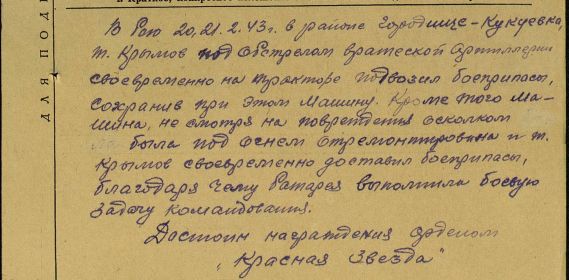 ДЛЯ ПОД
В Бою 20,21.2.43г. в районе Городище-Кукуевка,
т. Крымов под обстрелом вражеской артиллерии
своевременно на тракторе подвозил боеприпасы,
сохранив при этом машину. Кроме того ма-
шина, не смотря на повреждения осколком
была под огнем отремонтирована и т.
Крымов своевременно доставил боеприпасы,
благодаря чему батарея выполнила боевую
задачу командования.
Достоин награждения орденом
"Красная Звезда"